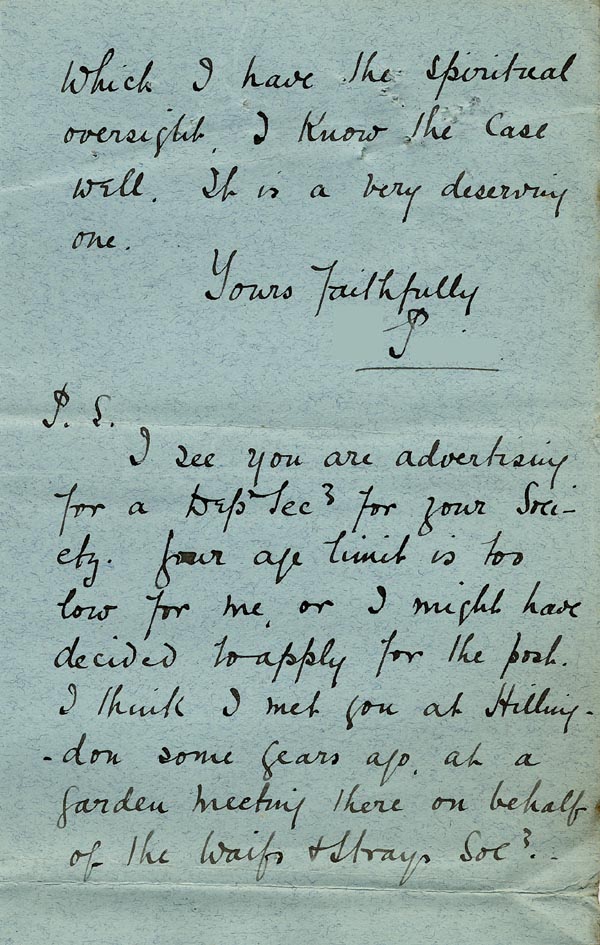 Which I have the spiritual
oversight, I know the case
well. It is a very deserving
one.
Yours faithfully
P
P. S.
I see you are advertising
for a Dep Secy for your Soci-
ety. Your age limit is too
low for me, or I might have
decided to apply for the post.
I think I met you at Hilling-
-don some years ago, at a
garden meeting there on behalf
of the Waifs & Strays Socy.-